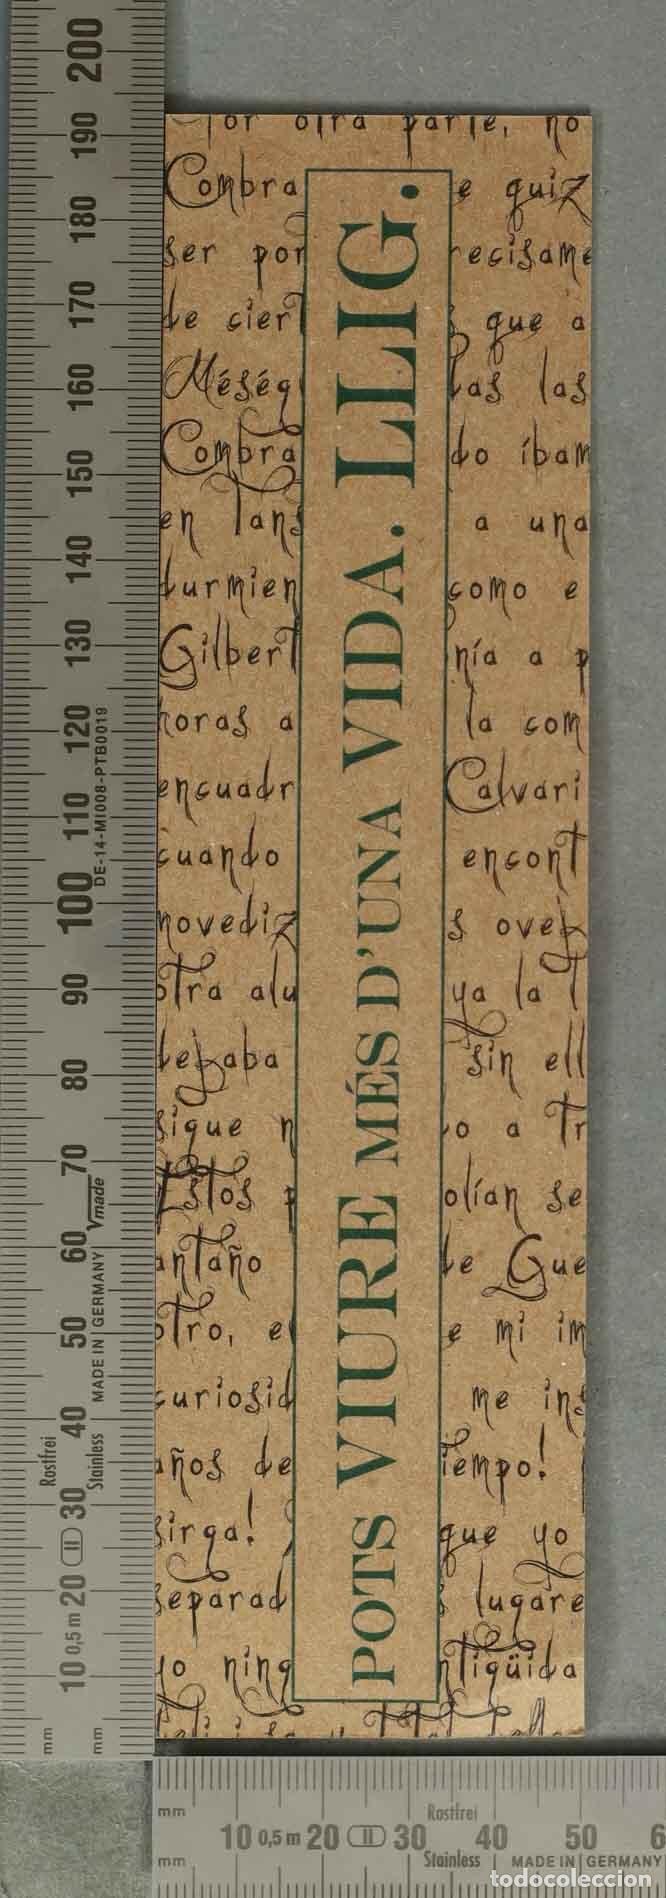 POTS VIURE MÉS D'UNA VIDA. LLIG.
por otra parte, no
Combra e quiz
ser por recisame
de ciert s que a
Méségl las las
Combra do íbam
en Tans a una
durmien como e
Gilbert nía a p
horas a la com
encuadr Calvari
cuando encont
movediz s ovej
otra alu ya la t
dejaba sin ell
sigue n o a Tr
Estos p olían se
antaño de Gue
otro, e e mi im
curiosid me ins
años de Tiempo!
sirga! que yo
separad s lugare
yo ning ntigüida
200
190
180
170
160
150
140
130
120
110
100
90
80
70
60
50
40
30
20
10
DE-14-MI008-PTB0019
made
MADE IN GERMANY
Rostfrei
Stainless
0,5 m
II
mm
mm
mm Rostfrei
10 0,5 m 20 II 30 40 50 6
mm Stainless MADE IN GERMANY
todocoleccion